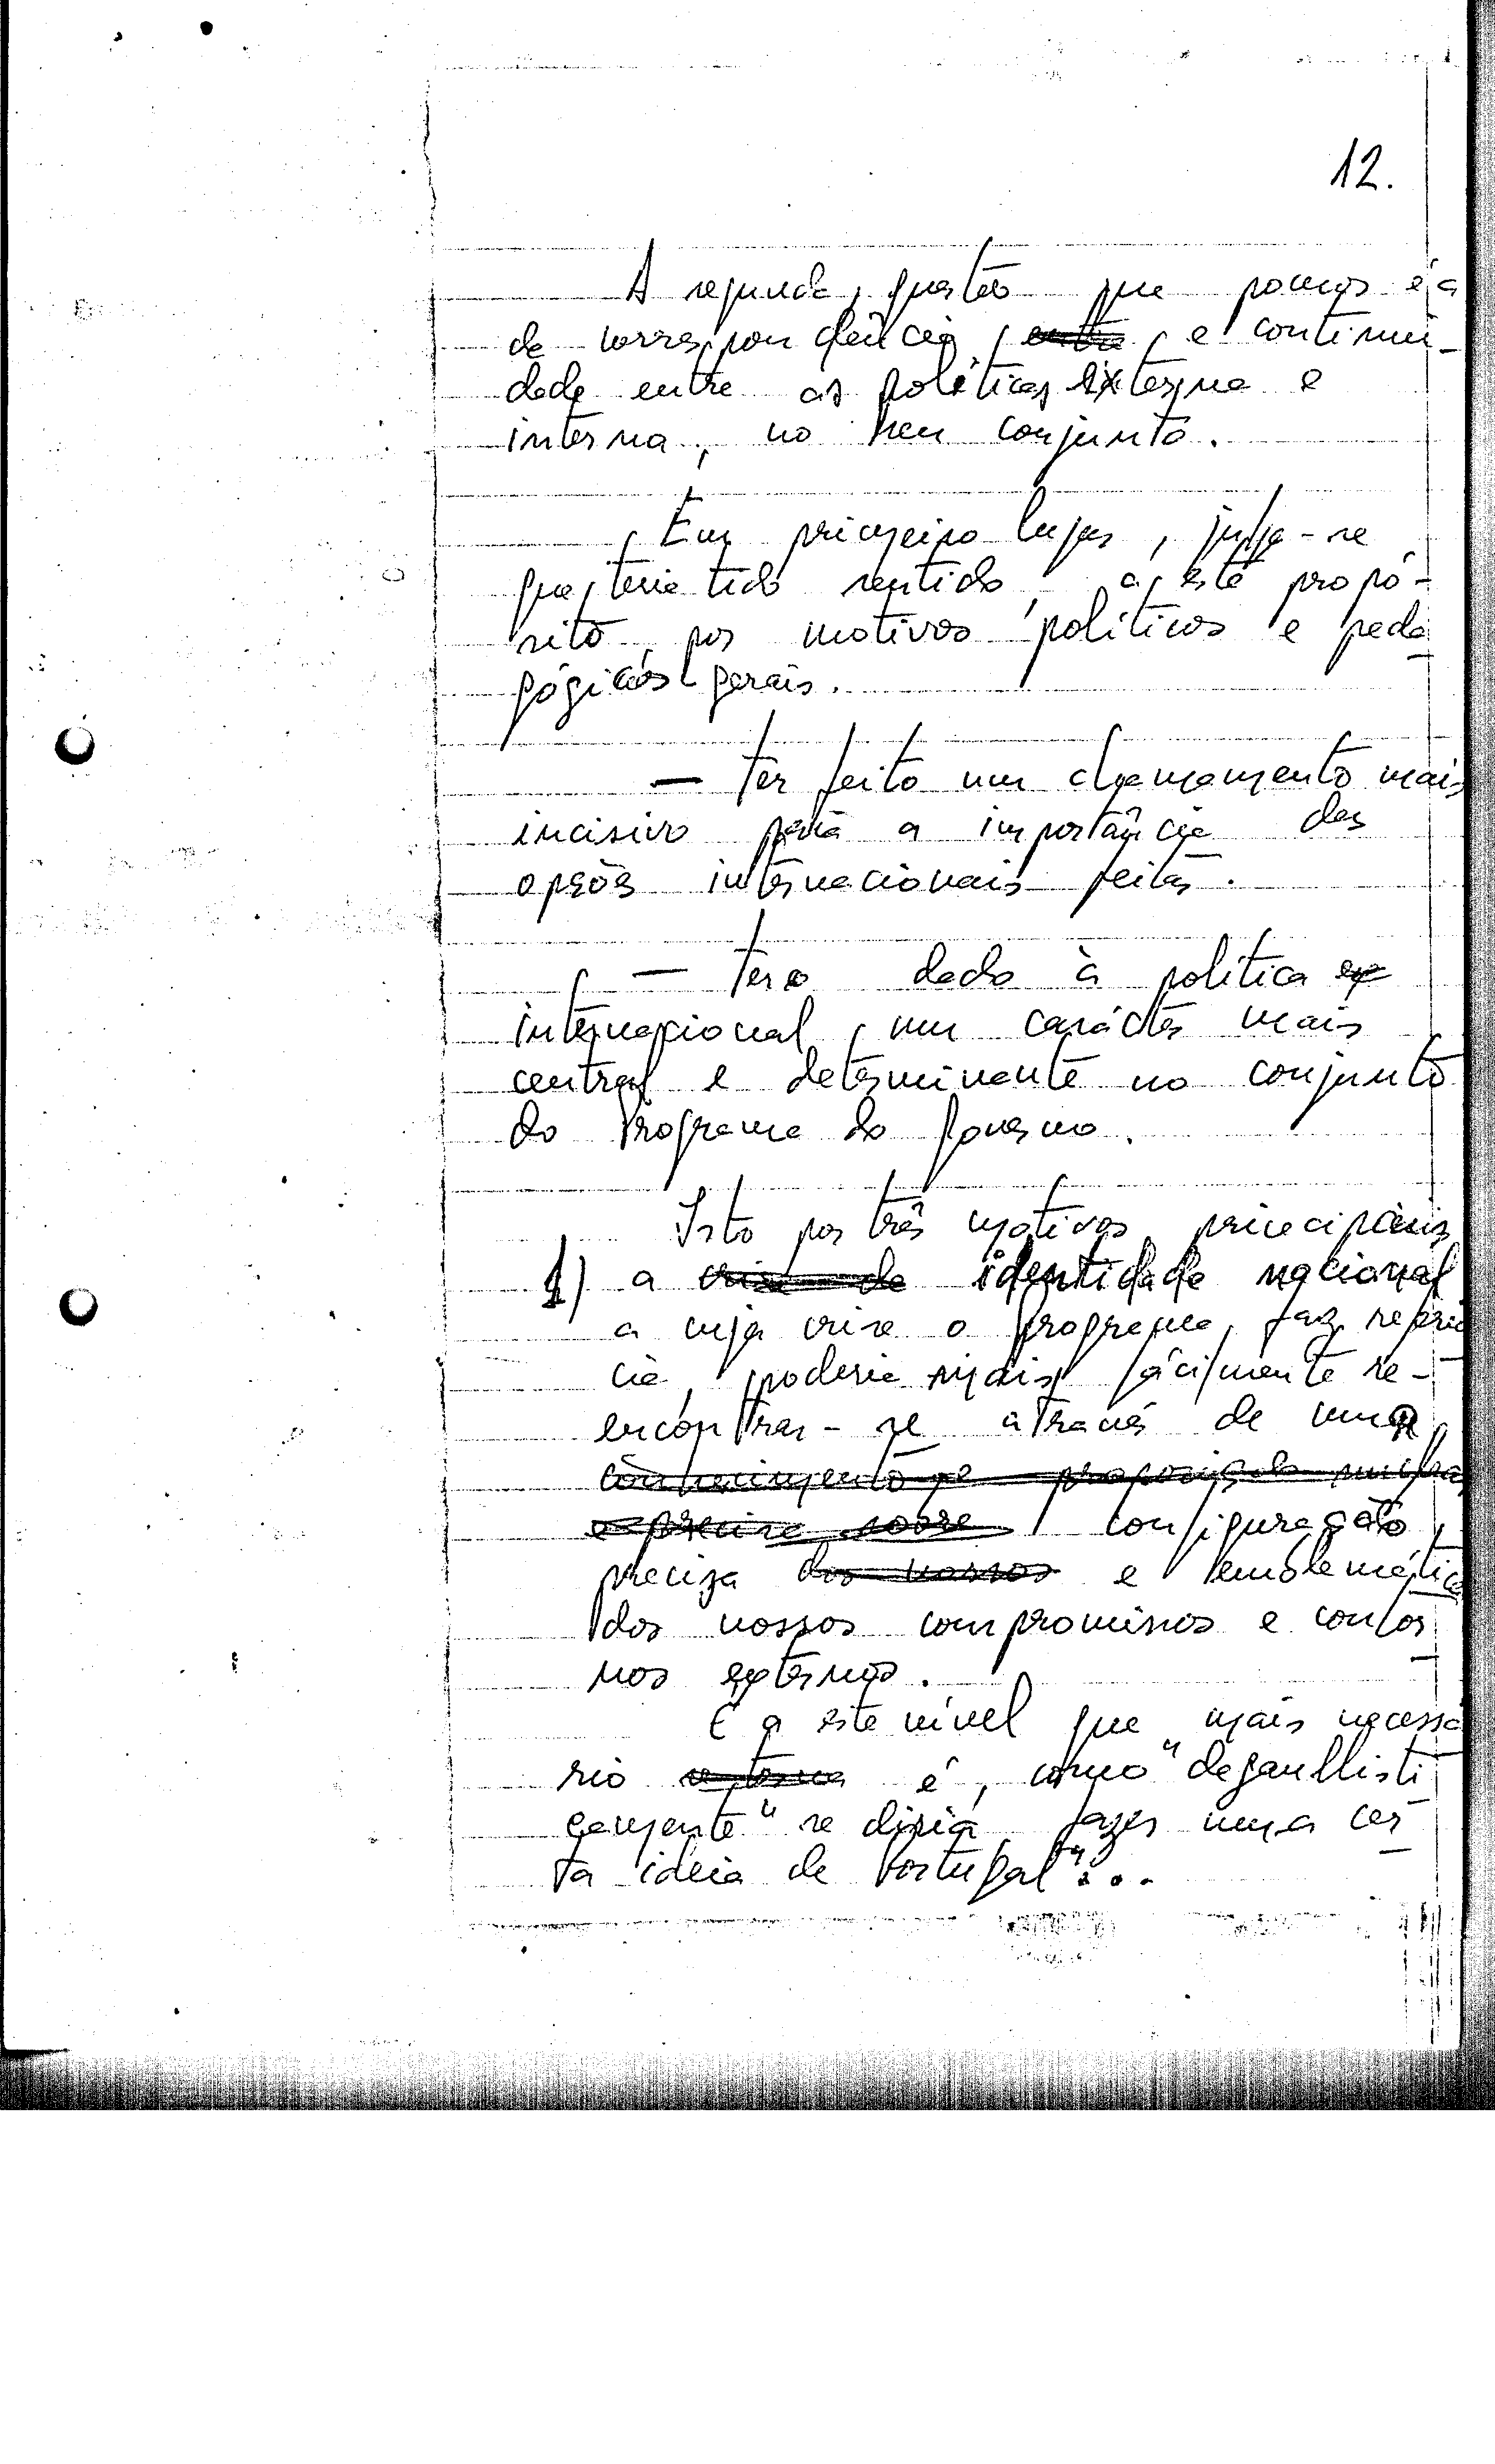 12.
A segunda questão que pomos é a
de correspondência ~~entre~~ e continui-
dade entre as políticas externa e
interna, no seu conjunto.
Em primeiro lugar, julga-se
que teria tido sentido, a este propó-
sito, por motivos políticos e peda-
gógicos gerais.
— ter feito um chamamento mais
incisivo para a importância das
opções internacionais feitas.
— ter dado à política
internacional um carácter mais
central e determinante no conjunto
do Programa do Governo.
Isto por três motivos principais
1) a ~~crise de~~ identidade nacional
a cuja crise o programa faz referên-
cia, poderia mais fácilmente re-
encontrar-se através de uma
configuração
precisa ~~dos nossos~~ e emblemática
dos nossos compromissos e contor-
nos externos.
É a este nível que mais necessá-
rio é, como "degaullisti-
camente" se diria, fazer uma cer-
ta ideia de Portugal"...